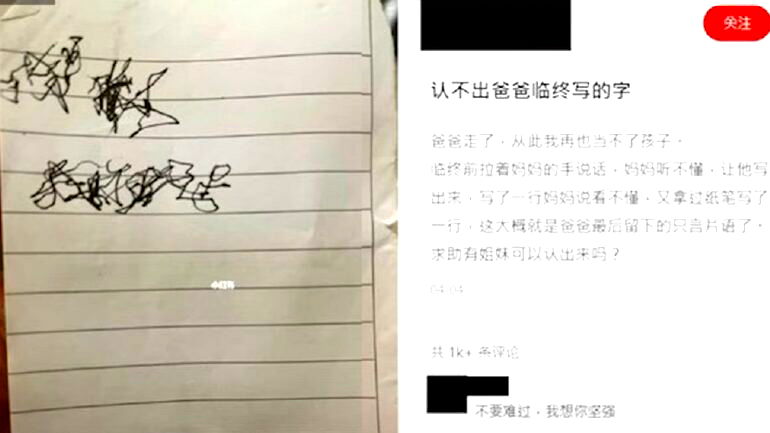 小红书
关注
认不出爸爸临终写的字
爸爸走了，从此我再也当不了孩子。
临终前拉着妈妈的手说话，妈妈听不懂，让他写
出来，写了一行妈妈说看不懂，又拿过纸笔写了
一行，这大概就是爸爸最后留下的只言片语了。
求助有姐妹可以认出来吗？
04-04
共 1k+ 条评论
不要难过，我想你坚强